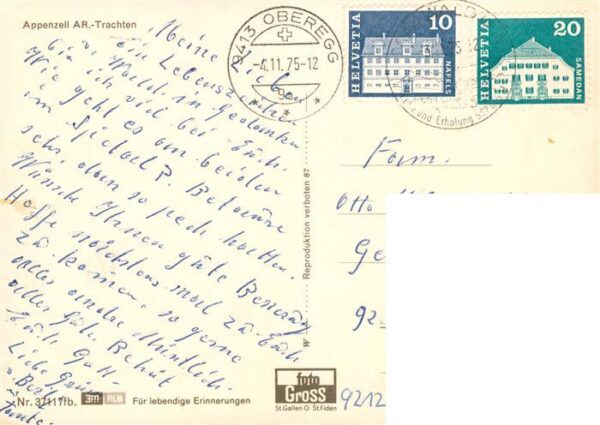 Appenzell AR.-Trachten
9413 OBEREGG
-4.11.75-12
HELVETIA
10
NÄFELS
HELVETIA
20
SAMEDAN
WALD
und Erholung
Meine Lieben
Ein Lebenszeichen
bin ich viel bei Euch.
Wie geht es den beiden
im Spital?
sehr
so Pech hatten.
Wünsche Ihnen gute Besserung
Hoffe nächstens mal zu Euch
zu kommen, so gerne
alles andre Mündlich.
alles Gute Behüt
Euch Gott
Liebe Grüsse
Tante.
Fam.
Otto
Ge
92
9212
Reproduktion verboten 87
W
Nr. 37117fb.
3M FILM
Für lebendige Erinnerungen
foto
Gross
St.Gallen O St.Fiden